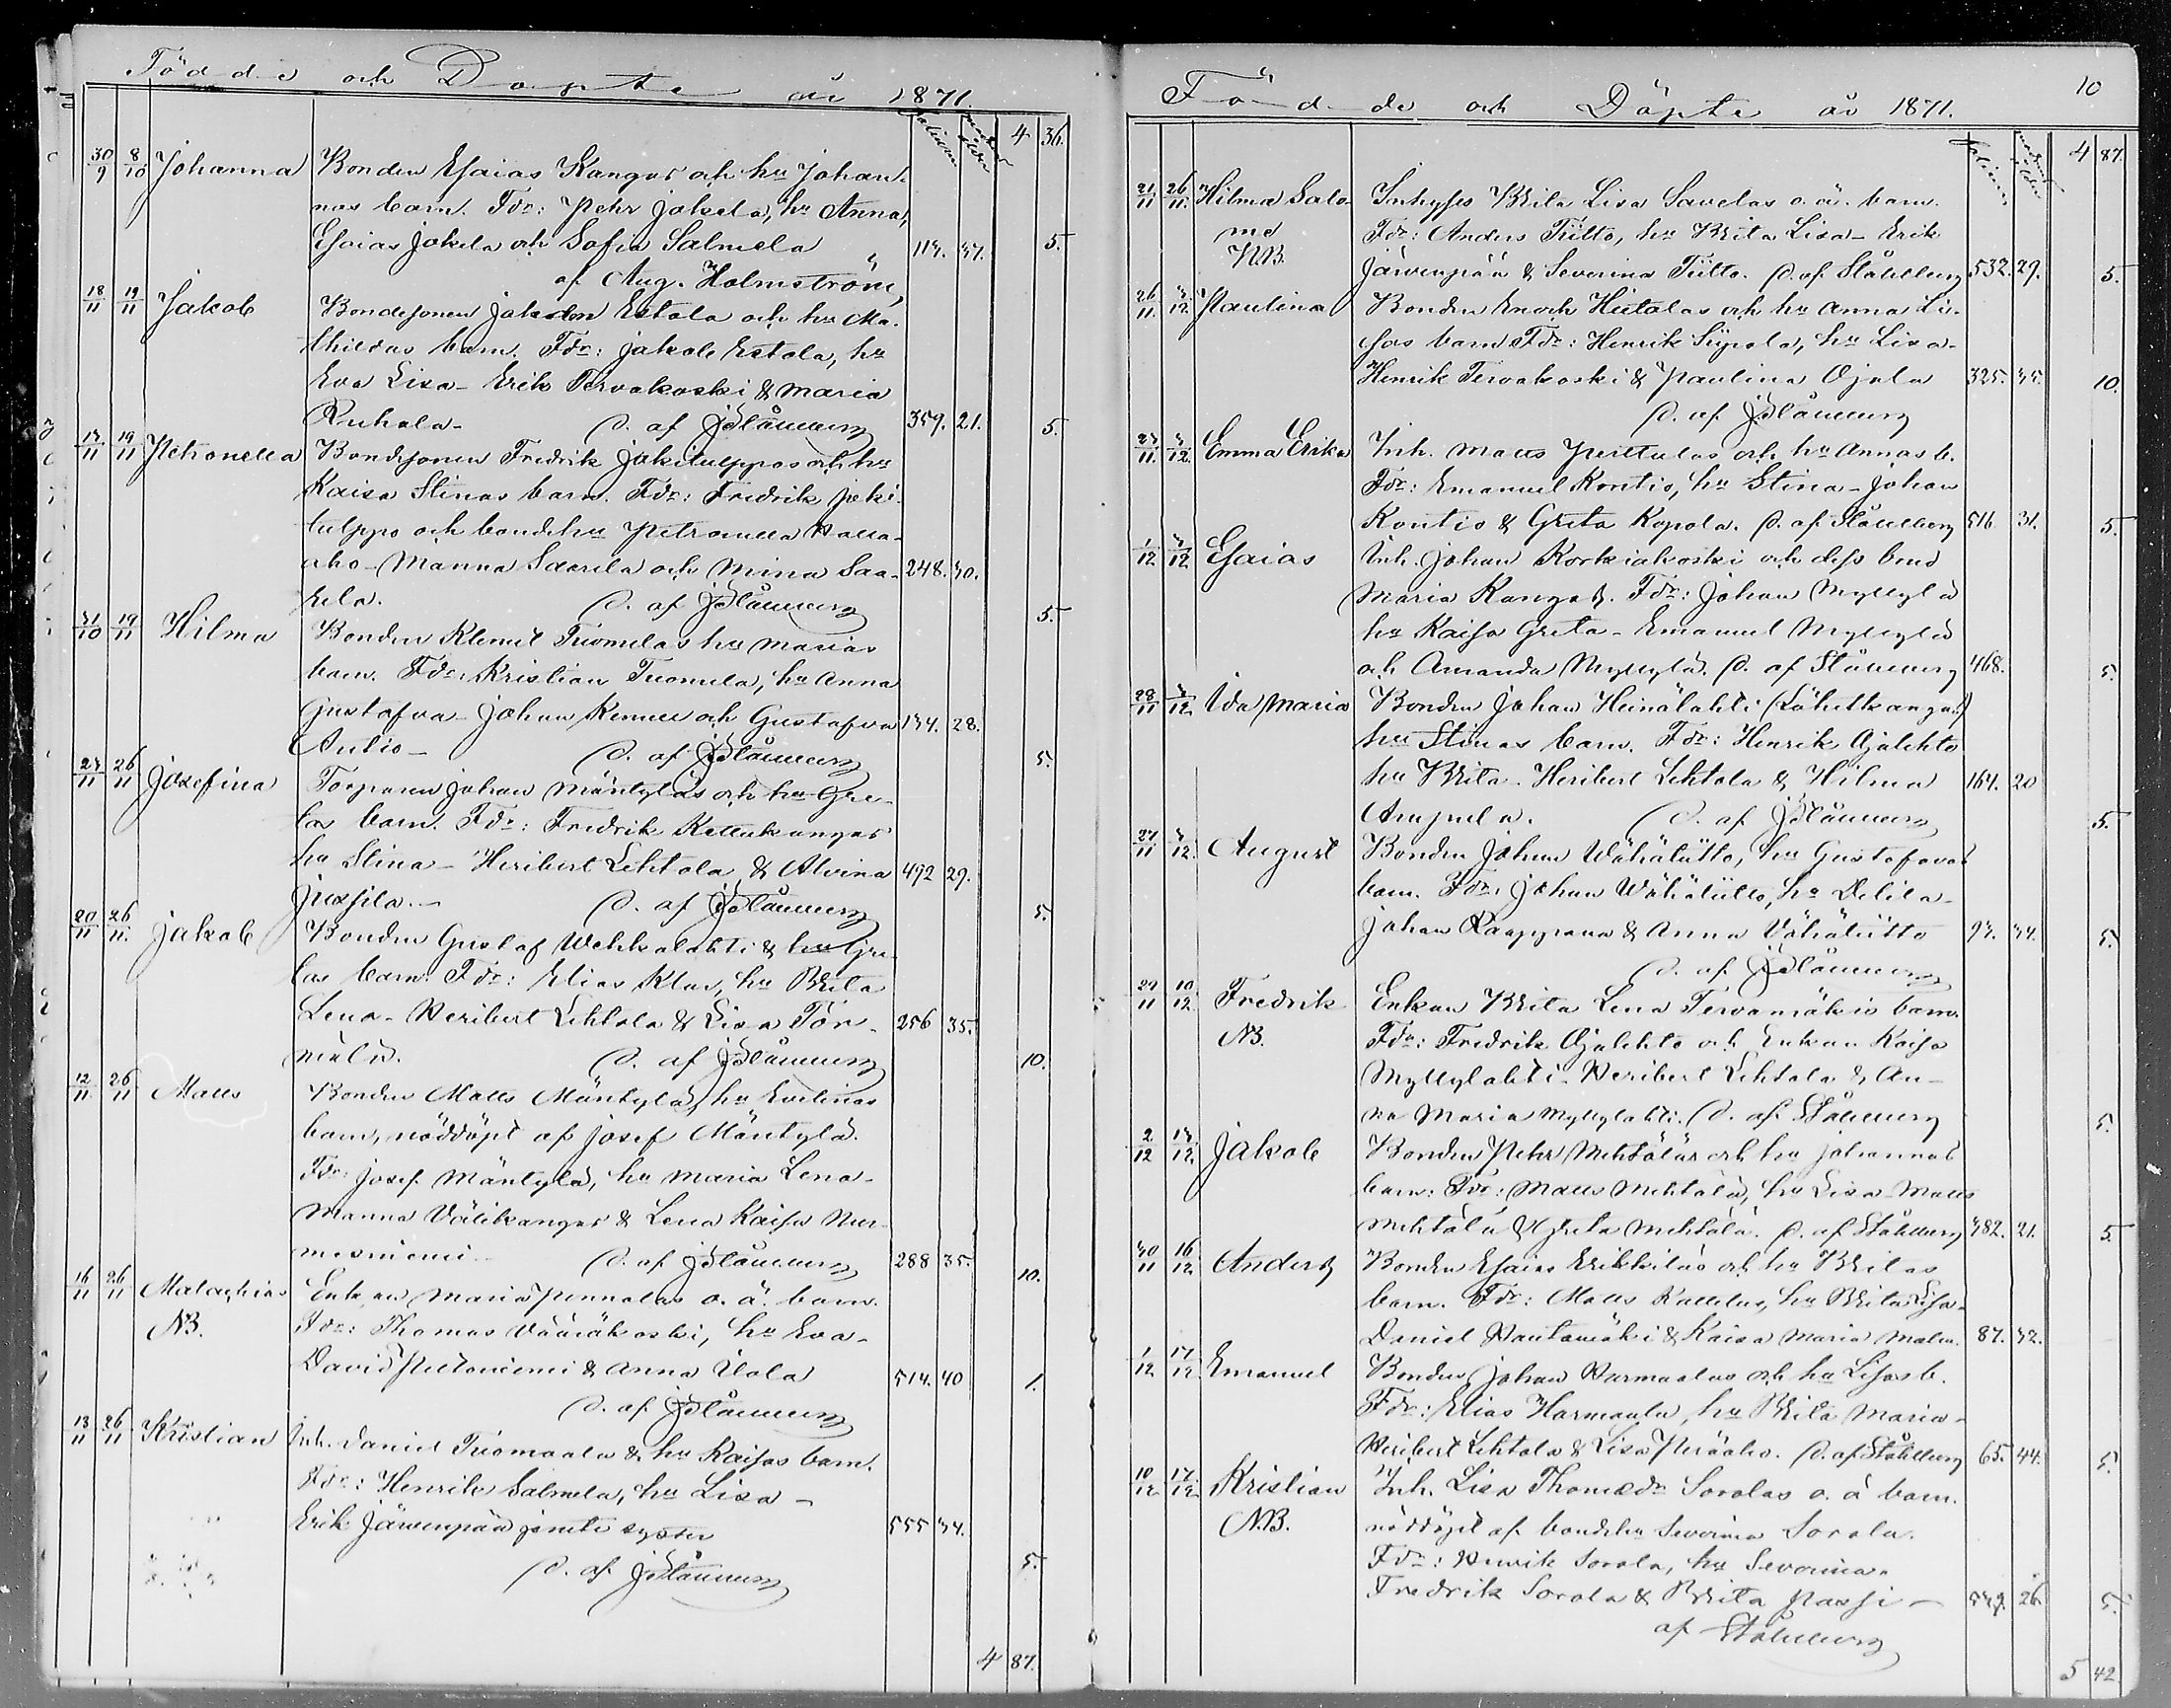 Födde och Döpte år 1871.
4 36.
30/9 8/10 Johanna Bonden Esaias Kangas och hu Johan-
nas barn. Fdr: Pehr Jokela, hu Anna,
Esaias Jokela och Sofia Salmela 113. 37. 5.
af Aug. Holmström,
18/11 19/11 Jakob Bondesonen Jakob Estola och hu Ma-
thildas barn. Fdr: Jakob Estola, hu
Eva Lisa - Erik Tervakoski & Maria
Ruhala - D. af JStåhlberg 359. 21. 5.
13/11 19/11 Petronella Bondesonen Fredrik Jokitulppos och hu
Kaisa Stinas barn. Fdr: Fredrik Joki-
tulppo och bondehu Petronella
aho - Manna Saarela och Mina Saa- 248. 30.
rela. D. af JStåhlberg 5.
31/10 19/11 Hilma Bonden Klemet Tuomelas hu Marias
barn. Fdr: Kristian Tuomela, hu Anna
Gustafva - Johan och Gustafva 134. 28.
Aulio - D. af JStåhlberg 5.
23/11 26/11 Josefina Torparen Johan Mäntyläs och hu Gre-
tas barn. Fdr: Fredrik Kettukangas
hu Stina - Heribert Lehtola & Alvina 492 29.
Jussila. - D. af JStåhlberg 5.
20/11 26/11. Jakob Bonden Gustaf Wehkalahti & hu Gre-
tas barn. Fdr: Elias Klus, hu Brita
Lena - Heribert Lehtola & Lisa Tör- 256 35.
mälä. D. af JStåhlberg 10.
12/11 26/11 Matts Bonden Matts Mäntylä, hu Evelinas
barn, nöddöpt af Josef Mäntylä.
Fdr: Josef Mäntylä, hu Maria Lena -
Manna Välikangas & Lena Kaisa Nur-
mesniemi - D. af JStåhlberg 288 35. 10.
16/11 26/11 Malachias Enkan Maria Pennalas o. ä. barn.
NB. Fdr: Thomas Vääräkoski, hu Eva -
David Pietoniemi & Anna Uola 514. 40 1.
D. af JStåhlberg
13/11 26/11 Kristian Inh. Daniel Tuomaala & hu Kaisas barn.
Fdr: Henrik Salmela, hu Lisa -
Erik Järvenpää jemte syster 555 34.
D. af JStåhlberg 5.
4 87.
10
Födde och Döpte år 1871.
4 87.
21/11 26/11. Hilma Salo- Inhyses Brita Lisa Savelas o. ä. barn.
me Fdr: Anders Tiitto, hu Brita Lisa - Erik
NB. Järvenpää & Severina Tiitto. D. af Ståhlberg 532. 29. 5.
26/11. 3/12. Paulina Bonden Enoch Hietalas och hu Anna Li-
sas barn Fdr: Henrik Sipola, hu Lisa -
Henrik Tervakoski & Paulina Ojala 325. 35. 10.
D. af JStåhlberg
23/11. 3/12. Emma Erika Inh. Matts Perttulas och hu Annas b.
Fdr: Emanuel Kontio, hu Stina - Johan
Kontio & Greta Kopola. D. af Ståhlberg 516 31. 5.
1/12 3/12 Esaias Inh. Johan Korkiakoski och dess brud
Maria Kangas. Fdr: Johan Myllylä
hu Kaisa Greta - Emanuel Myllylä
och Amanda Myllylä. D. af Ståhlberg 468. 5.
28/11 3/12. Ida Maria Bonden Johan Heinälahti (Lähetkangas)
hu Stinas barn. Fdr: Henrik Ojalehto
hu Brita - Heribert Lehtola & Hilma 164. 20
D. af JStåhlberg 5.
27/11 3/12. August Bonden Johan Wähätiitto, hu Gustafvas
barn. Fdr: Johan Wähätiitto, hu Delila -
Johan Kaappana & Anna Vähätiitto 93. 34. 5.
D. af JStåhlberg
29/11 10/12 Fredrik Enkan Brita Lena Tervamäkis barn.
NB. Fdr: Fredrik Ojalehto och Enkan Kaisa
Myllylahti - Heribert Lehtola & An-
na Maria Myllylahti. D. af Ståhlberg 5.
2/12 13/12. Jakob Bonden Pehr Mehtäläs och hu Johannas
barn: Fdr: Matts Mehtälä, hu Lisa - Matts
Mehtälä & Greta Mehtälä. D. af Ståhlberg 382. 21. 5.
30/11 16/12. Anders Bonden Esaias Erikkiläs och hu Britas
barn. Fdr: Matts Kallelus, hu Brita Lisa -
Daniel Rautamäki & Kaisa Maria 87. 32.
1/12 17/12 Emanuel Bonden Johan Harmaalas och hu Lisas b.
Fdr: Elias Harmaala, hu Brita Maria -
Heribert Lehtola & Lisa Peräaho. D. af Ståhlberg 65. 44. 5.
10/12 17/12. Kristian Inh. Lisa Thomædr Sorolas o. ä barn.
NB. nöddöpt af bondehu Severina Sorola.
Fdr: Henrik Sorola, hu Severina -
Fredrik Sorola & Brita Passi - 26 5.
af Ståhlberg
5 42